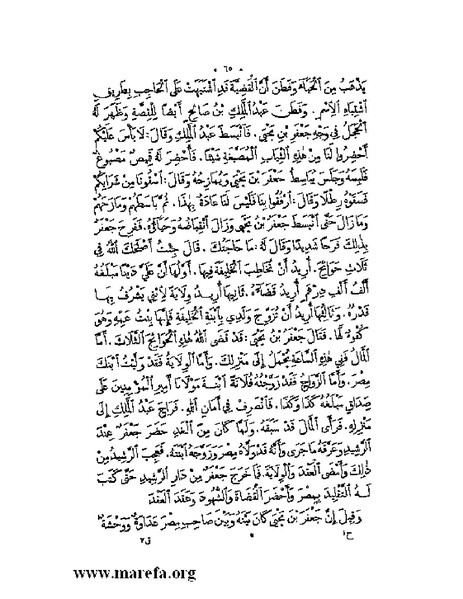 • ٦٥ •
يَذْهَبُ مِنَ الْحَيَاءِ وَفَطِنَ أَنَّ الْقَضِيَّةَ قَدِ اشْتَبَهَتْ عَلَى الْحَاجِبِ بِطَرِيقِ
اشْتِبَاهِ الِاسْمِ . وَفَطَنَ عَبْدُ الْمَلِكِ بْنُ صَالِحٍ أَيْضًا لِلْقِصَّةِ وَظَهَرَ لَهُ
الْخَجَلُ فِي وَجْهِ جَعْفَرِ بْنِ يَحْيَى . فَانْبَسَطَ عَبْدُ الْمَلِكِ وَقَالَ: لَا بَأْسَ عَلَيْكُمْ
أَحْضِرُوا لَنَا مِنْ هٰذِهِ الثِّيَابِ الْمُصَبَّغَةِ شَيْئًا . فَأُحْضِرَ لَهُ قَمِيصٌ مَصْبُوغٌ
فَلَبِسَهُ وَجَلَسَ يُبَاسِطُ جَعْفَرَ بْنَ يَحْيَى وَيُمَازِحُهُ وَقَالَ: اسْقُونَا مِنْ شَرَابِكُمْ
فَسَقَوْهُ رِطْلًا وَقَالَ: ارْفُقُوا بِنَا فَلَيْسَ لَنَا عَادَةٌ بِهٰذَا. ثُمَّ بَاسَطَهُمْ وَمَازَحَهُمْ
وَمَا زَالَ حَتَّى انْبَسَطَ جَعْفَرُ بْنُ يَحْيَى وَزَالَ انْقِبَاضُهُ وَحَيَاؤُهُ. فَفَرِحَ جَعْفَرٌ
بِذٰلِكَ فَرَحًا شَدِيدًا وَقَالَ لَهُ: مَا حَاجَتُكَ . قَالَ جِئْتُ أَصْلَحَكَ اللّٰهُ فِي
ثَلَاثِ حَوَائِجَ. أُرِيدُ أَنْ تُخَاطِبَ الْخَلِيفَةَ فِيهَا. أَوَّلُهَا أَنَّ عَلَيَّ دَيْنًا مَبْلَغُهُ
أَلْفُ أَلْفِ دِرْهَمٍ أُرِيدُ قَضَاءَهُ. ثَانِيهَا أُرِيدُ وِلَايَةً لِابْنِي يَشْرُفُ بِهَا
قَدْرُهُ. وَثَالِثُهَا أُرِيدُ أَنْ تُزَوِّجَ وَلَدِي بِابْنَةِ الْخَلِيفَةِ فَإِنَّهَا بِنْتُ عَمِّهِ وَهُوَ
كُفُوءٌ لَهَا. فَقَالَ جَعْفَرُ بْنُ يَحْيَى: قَدْ قَضَى اللّٰهُ هٰذِهِ الْحَوَائِجَ الثَّلَاثَ. أَمَّا
الْمَالُ فَفِي هٰذِهِ السَّاعَةِ يُحْمَلُ إِلَى مَنْزِلِكَ. وَأَمَّا الْوِلَايَةُ فَقَدْ وَلَّيْتُ ابْنَكَ
مِصْرَ . وَأَمَّا الزَّوَاجُ فَقَدْ زَوَّجْتُهُ فُلَانَةَ ابْنَةَ مَوْلَانَا أَمِيرِ الْمُؤْمِنِينَ عَلَى
صَدَاقٍ مَبْلَغُهُ كَذَا وَكَذَا. فَانْصَرِفْ فِي أَمَانِ اللّٰهِ. فَرَاحَ عَبْدُ الْمَلِكِ إِلَى
مَنْزِلِهِ. فَرَأَى الْمَالَ قَدْ سَبَقَهُ. وَلَمَّا كَانَ مِنَ الْغَدِ حَضَرَ جَعْفَرٌ عِنْدَ
الرَّشِيدِ وَعَرَّفَهُ مَا جَرَى وَأَنَّهُ قَدْ وَلَّاهُ مِصْرَ وَزَوَّجَهُ ابْنَتَهُ. فَعَجِبَ الرَّشِيدُ مِنْ
ذٰلِكَ وَأَمْضَى الْعَقْدَ وَالْوِلَايَةَ. فَمَا خَرَجَ جَعْفَرٌ مِنْ دَارِ الرَّشِيدِ حَتَّى كَتَبَ
لَهُ التَّقْلِيدَ بِمِصْرَ وَأَحْضَرَ الْقُضَاةَ وَالشُّهُودَ وَعَقَدَ الْعَقْدَ
وَقِيلَ إِنَّ جَعْفَرَ بْنَ يَحْيَى كَانَ بَيْنَهُ وَبَيْنَ صَاحِبِ مِصْرَ عَدَاوَةٌ وَوَحْشَةٌ
www.marefa.org